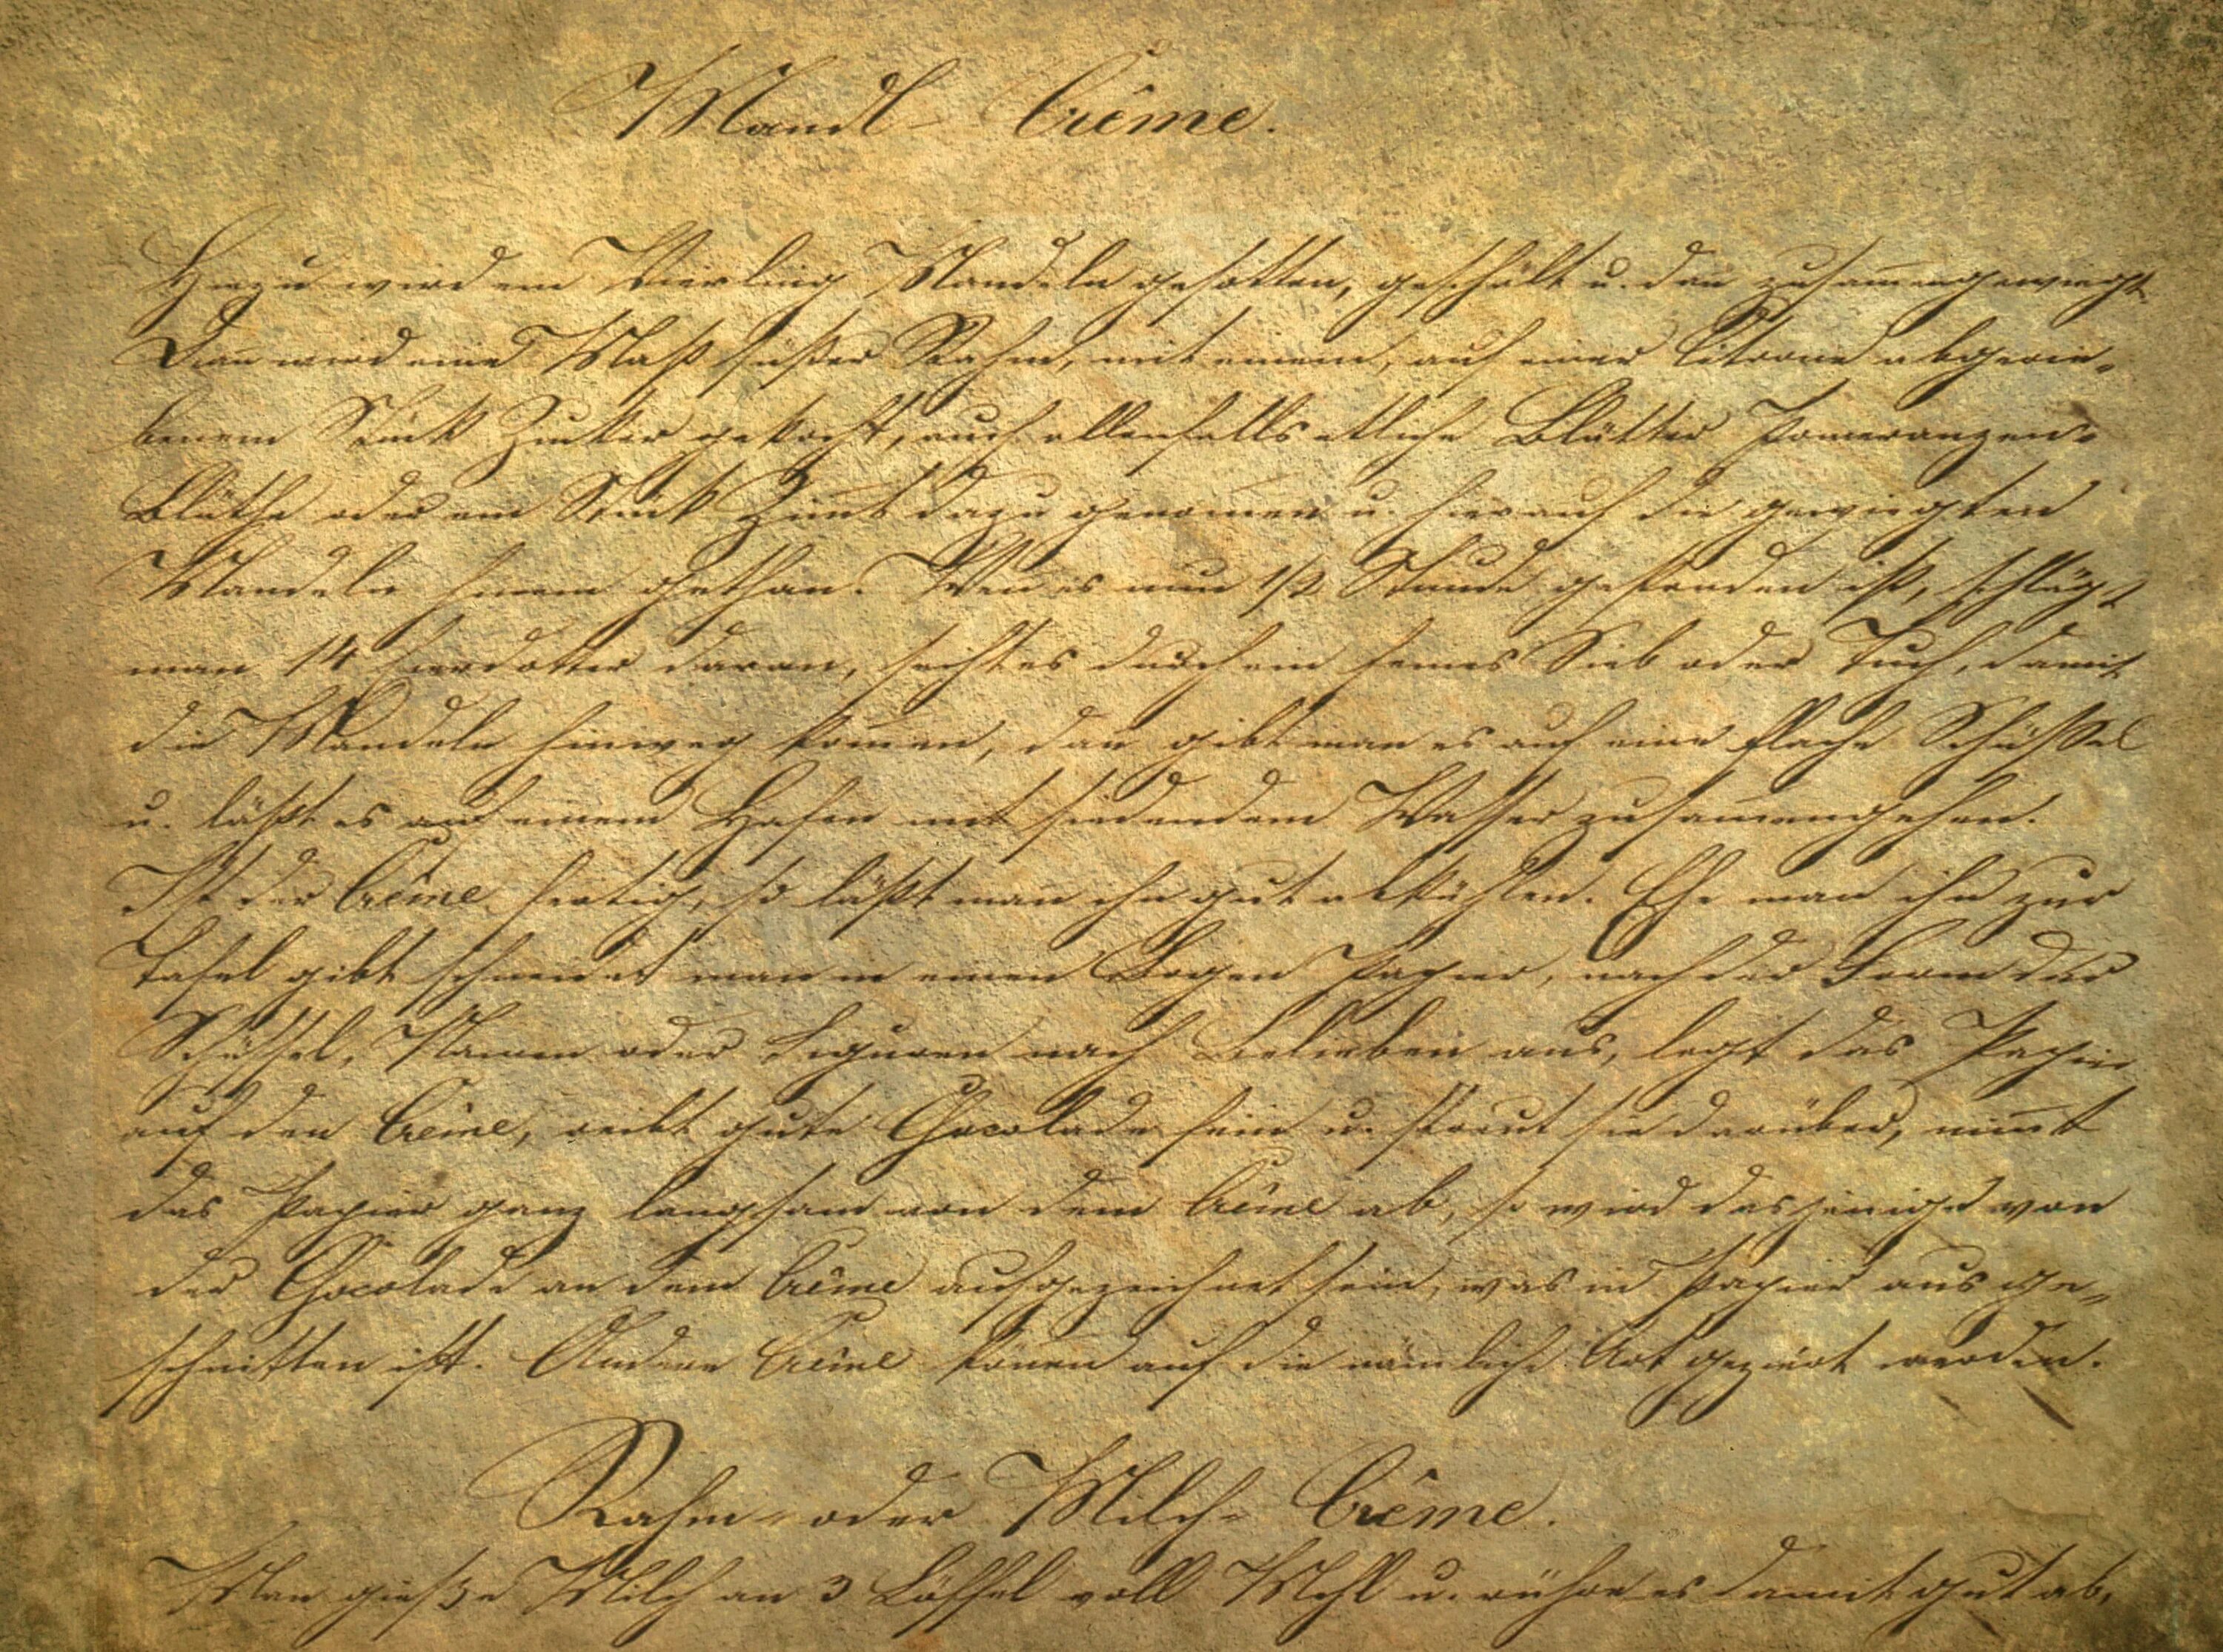 Mandl- Crême.
Hiezu wird ein Vierling Mandeln gesotten, geschält u. dañ zusam̄engewiegt.
Dañ wird eine Maß süßer Rahm, mit einem, auf einer Citrone abgerie-
benem Stück Zucker gekocht, auch allenfalls etliche Blätter Pomeranzen-
Blüthe oder ein Stück Zim̄t dazu genom̄en u. hierauf die gewiegten
Mandeln hinein gethan. Weñ es nun Stunde gestanden ist, schlägt
man 14 Eierdotter daran, seiht es durch ein feines Sieb oder Tuch, damit
die Mandeln hinweg kom̄en, dañ gibt man es auf eine flache Schüssel
u. läßt es auf einem Hafen mit siedendem Wasser zusam̄engehen.
Ist der Crême fertig, so läßt man ihn gut abkühlen. Ehe man ihn zur
Tafel gibt schneidet man in einen Bogen Papier, nach der Form der
Schüssel, Namen oder Figuren nach Belieben aus, legt das Papier
auf den Crême, reibt gute Chocolade fein u. streut sie darüber, nim̄t
das Papier ganz langsam von dem Crême ab, so wird dasjenige von
der Chocolade an dem Crême aufgezeichnet sein, was in Papier ausge-
schnitten ist. Andere Crême köñen auf die nämliche Art geziert werden.
Rahm- oder Milch- Crême.
Man gieße Milch an 3 Löffel voll Mehl u. rühre es damit gut ab,